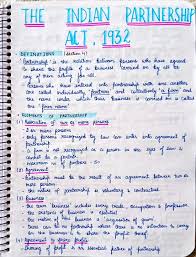 THE INDIAN PARTNERSHIP
ACT, 1932
DEFINATIONS (Section 4)
Partnership is the relation between persons who have agreed
to share the profits of a business carried on by all or
any of them acting for all.
Persons who have entered into partnership with one another
are called individually and
the name under which their business is carried on is called
ELEMENTS OF PARTNERSHIP
(1) Association of two or more persons
2 or more persons
Only persons recognized by law can enter into agreement of
partnership
a person recognized in the eyes of law
cannot be a partner
(2) Agreement
Partnership must be the result of an agreement between two or
more persons
of partnership is voluntary & contractual
(3) Business
The term business includes every trade, occupation & profession
of the business is
The motive of the business is acquisition of gains
There can be no partnership where there is no intention to carry
on the business and to share the profit
(4) Agreement to share profit
Sharing of profits is an essential feature of partnership